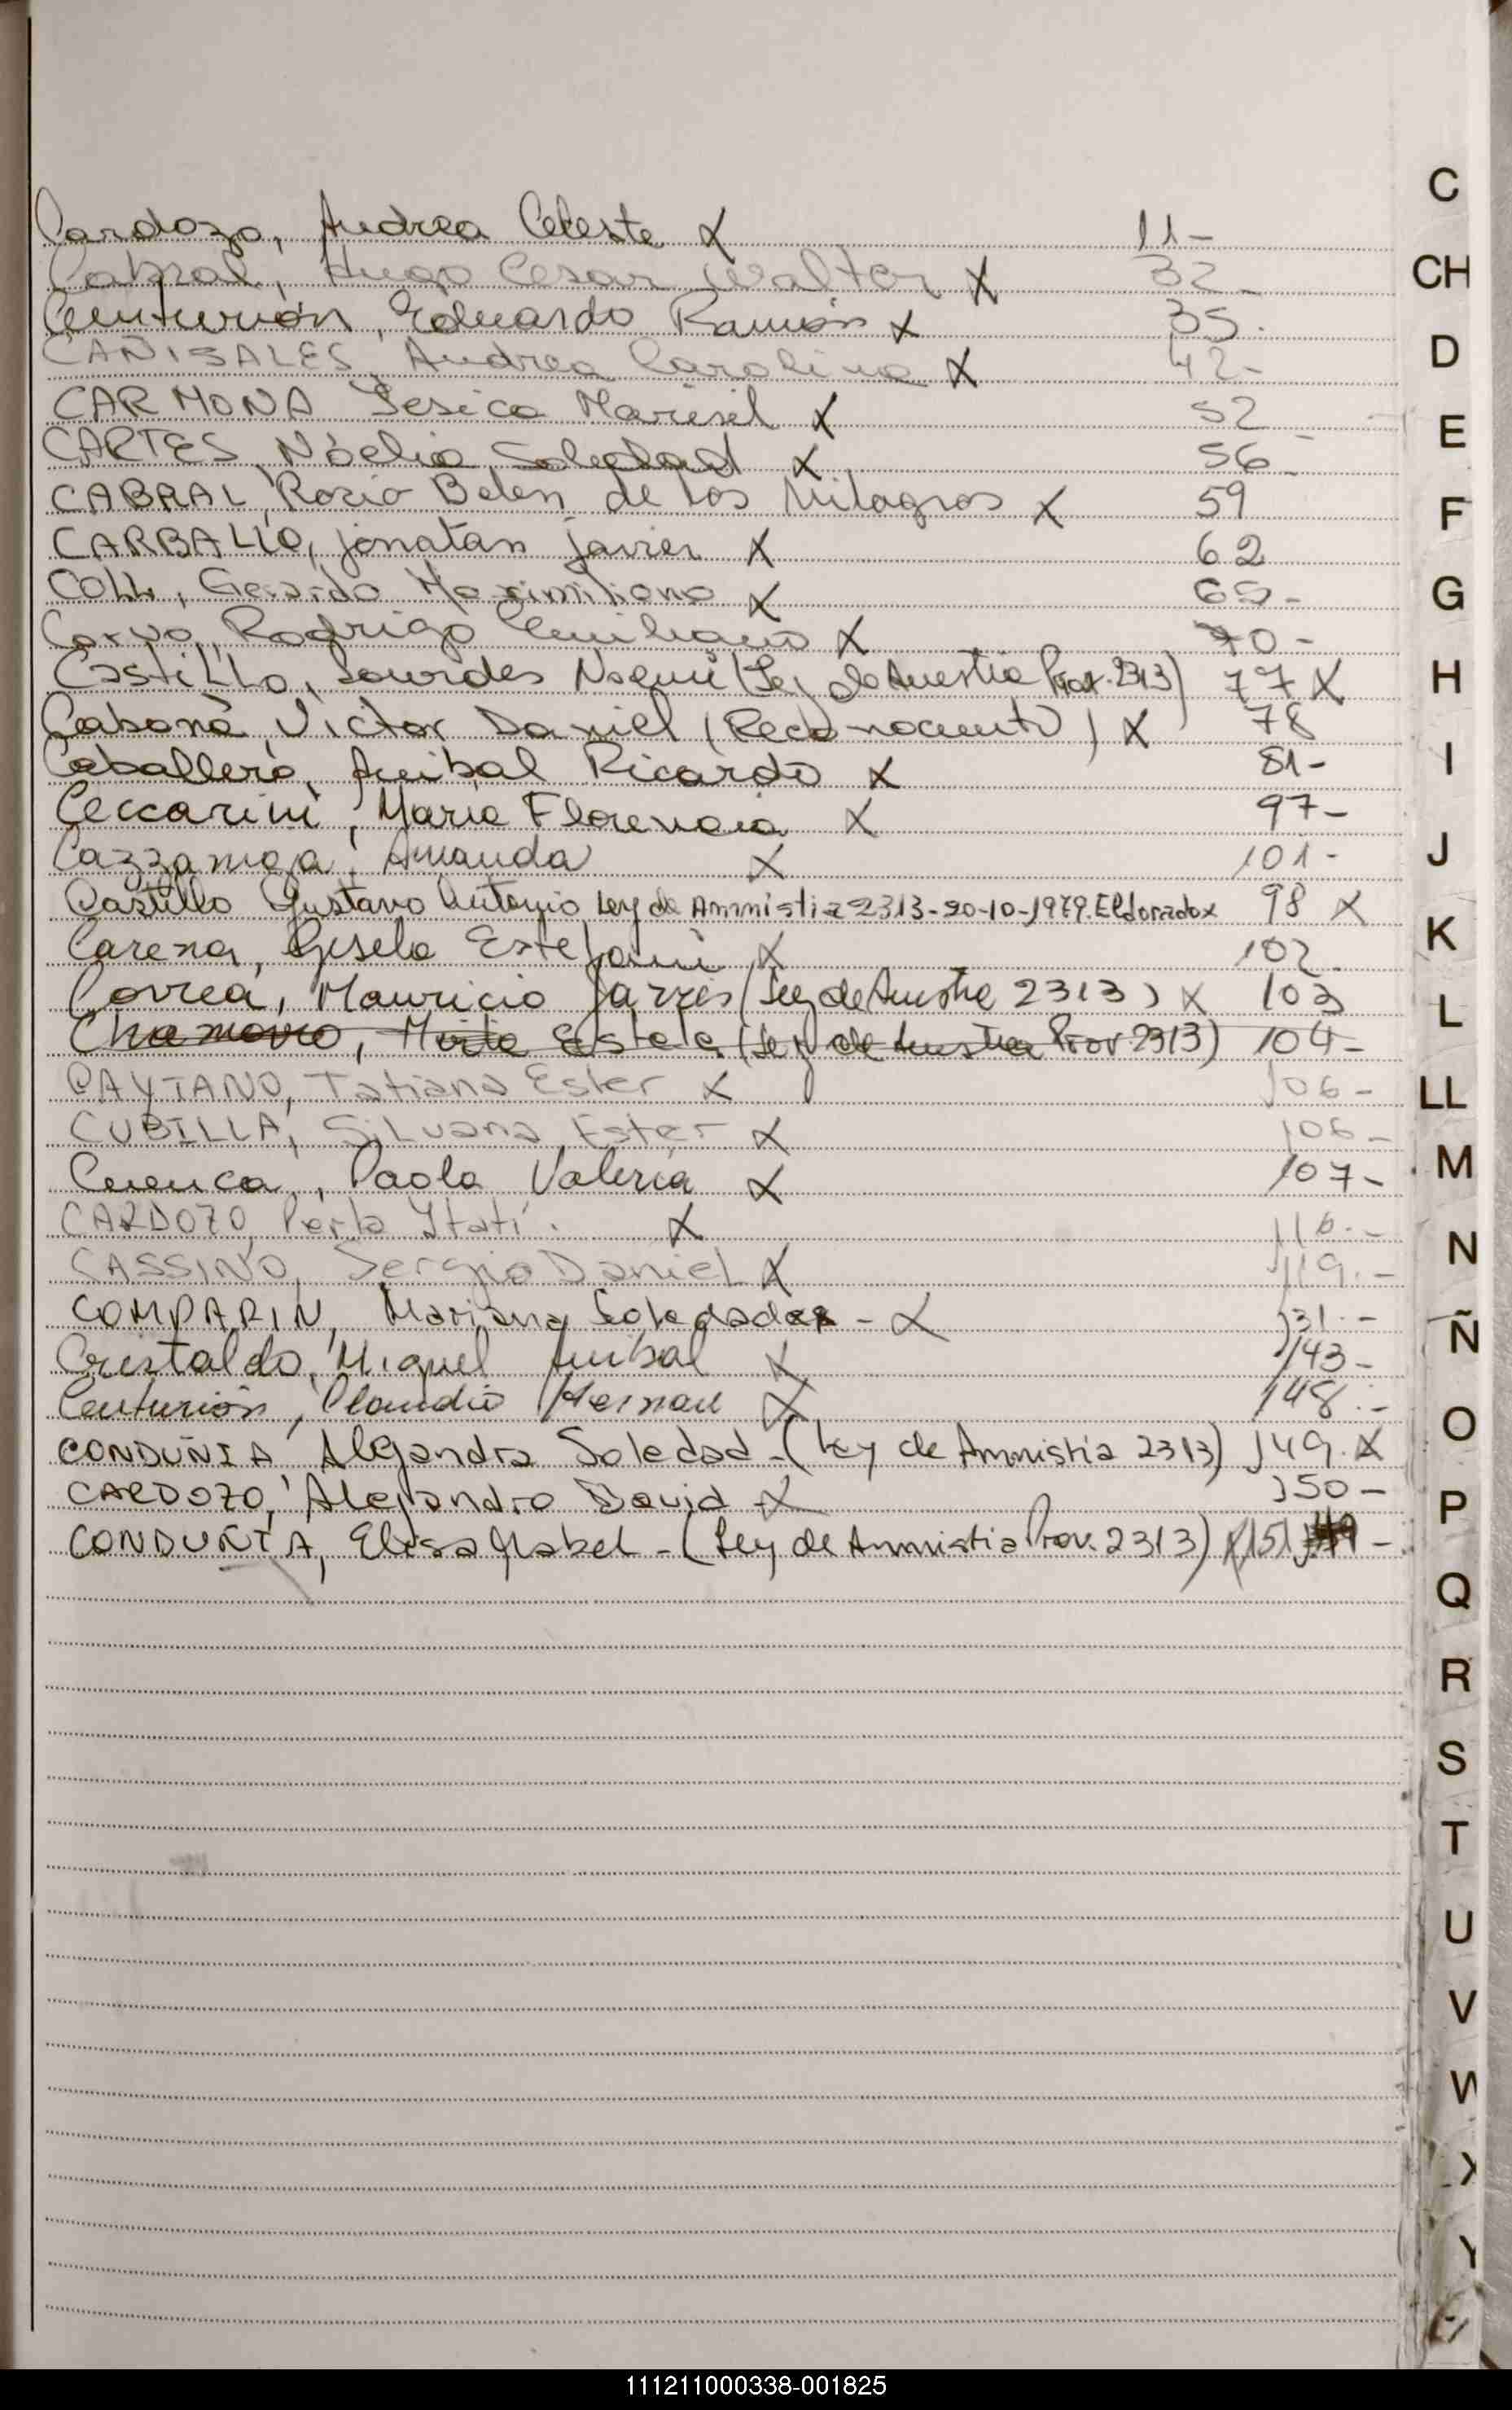 Cardozo, Andrea Celeste X 11-
Cabral, Hugo Cesar Walter X 32-
Centurión, Eduardo Ramón X 35.
CAÑISALES, Andrea Carolina X 42-
CARMONA Yesica Marisel X 52
CARTES, Nóelia Soledad X 56-
CABRAL, Rocio Belen de los Milagros X 59
CARBALLO, jonatan javier X 62
COLL, Gerardo Maximiliano X 65-
Corvo, Rodrigo Emiliano X 70-
Castillo, Lourdes Noemí (Ley de Amnistia Prov. 2313) 77 X
Cabaná, Victor Daniel (Reconocimiento) X 78
Caballero, Anibal Ricardo X 81-
Ceccarini, Maria Florencia X 97-
Cazzaniga, Amanda X 101-
Castillo Gustavo Antonio Ley de Amnistia 2313-20-10-1979. Eldorado X 98 X
Carena, Gisela Estefani X 102
Correa, Mauricio (Ley de Amnistia 2313) X 103
Chamorro, Mirta Estela (Ley de Amnistia Prov. 2313) 104-
CAYTANO, Tatiana Ester X 106-
CUBILLA, Silvana Ester X 106-
Cuenca, Paola Valeria X 107-
CARDOZO, Perla Itatí. X 116.-
CASSINO, Sergio Daniel X 119.-
COMPARIN, Mariana Soledad - X 131.-
Cristaldo, Miguel Anibal X 143-
Centurión, Claudio Hernan X 148.-
CONDUÑIA Alejandra Soledad - (Ley de Amnistia 2313) 149. X
CARDOZO, Alejandro David X 150-
CONDUÑIA, Elisa Mabel - (Ley de Amnistia Prov. 2313) X 151 -
C
CH
D
E
F
G
H
I
J
K
L
LL
M
N
Ñ
O
P
Q
R
S
T
U
V
W
X
Y
111211000338-001825